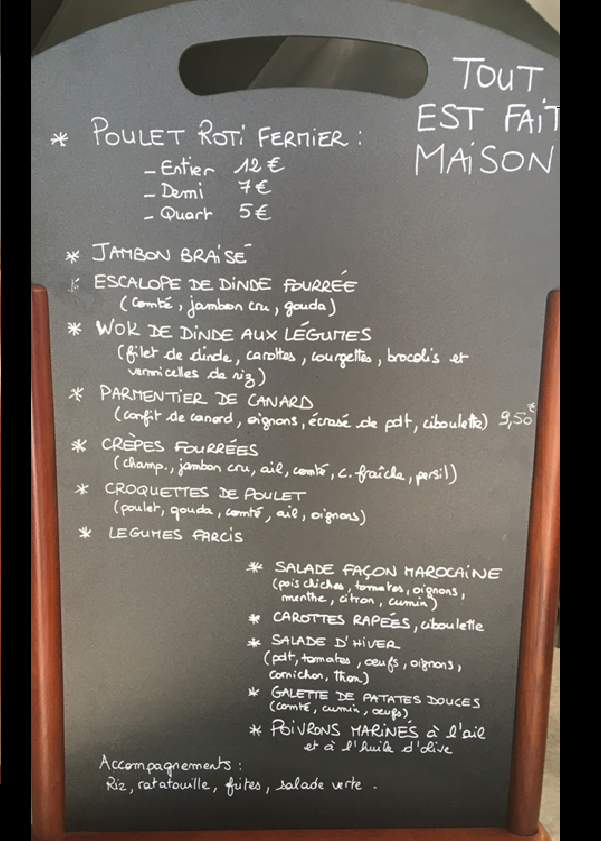 TOUT
EST FAIT
MAISON
* POULET ROTI FERMIER :
- Entier 12 €
- Demi 7 €
- Quart 5 €
* JAMBON BRAISÉ
* ESCALOPE DE DINDE FOURRÉE
(comté, jambon cru, gouda)
* WOK DE DINDE AUX LÉGUMES
(filet de dinde, carottes, courgettes, brocolis et
vermicelles de riz)
* PARMENTIER DE CANARD
(confit de canard, oignons, écrasé de pdt, ciboulette) 9,50€
* CRÈPES FOURRÉES
(champ., jambon cru, ail, comté, c. fraîche, persil)
* CROQUETTES DE POULET
(poulet, gouda, comté, ail, oignons)
* LEGUMES FARCIS
* SALADE FAÇON MAROCAINE
(pois chiches, tomates, oignons,
menthe, citron, cumin)
* CAROTTES RAPEÉS, ciboulette
* SALADE D'HIVER
(pdt, tomates, oeufs, oignons,
cornichon, thon)
* GALETTE DE PATATES DOUCES
(comté, cumin, oeufs)
* POIVRONS MARINÉS à l'ail
et à l'huile d'olive
Accompagnements :
Riz, ratatouille, frites, salade verte -